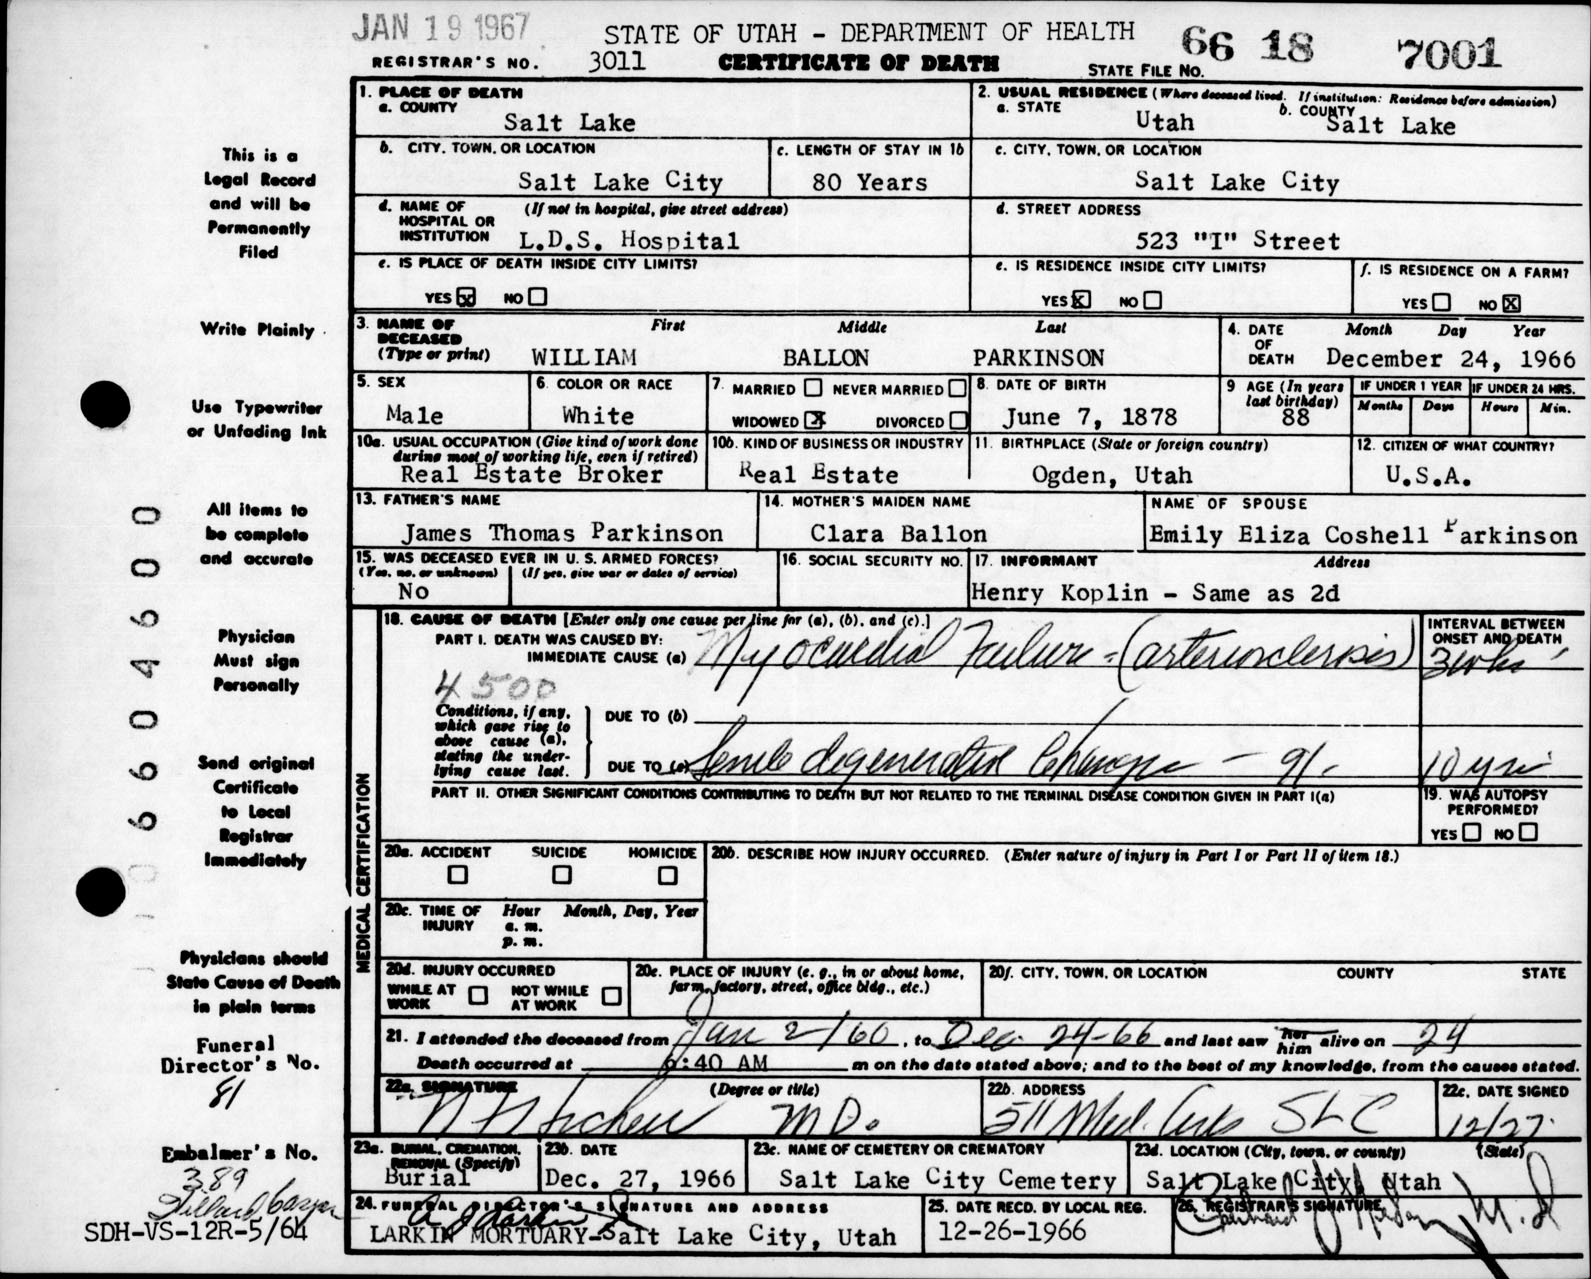 JAN 19 1967
STATE OF UTAH - DEPARTMENT OF HEALTH
66 18 7001
REGISTRAR'S NO. 3011 CERTIFICATE OF DEATH STATE FILE NO.
This is a
Legal Record
and will be
Permanently
Filed
Write Plainly
Use Typewriter
or Unfading Ink
All items to
be complete
and accurate
Physician
Must sign
Personally
Send original
Certificate
to Local
Registrar
Immediately
Physicians should
State Cause of Death
in plain terms
Funeral
Director's No.
81
Embalmer's No.
389
SDH-VS-12R-5/64
0066604600
1. PLACE OF DEATH
a. COUNTY
Salt Lake
2. USUAL RESIDENCE (Where deceased lived. If institution: Residence before admission)
a. STATE b. COUNTY
Utah Salt Lake
b. CITY, TOWN, OR LOCATION
Salt Lake City
c. LENGTH OF STAY IN 1b
80 Years
c. CITY, TOWN, OR LOCATION
Salt Lake City
d. NAME OF HOSPITAL OR INSTITUTION (If not in hospital, give street address)
L.D.S. Hospital
d. STREET ADDRESS
523 "I" Street
e. IS PLACE OF DEATH INSIDE CITY LIMITS?
YES X NO
e. IS RESIDENCE INSIDE CITY LIMITS?
YES X NO
f. IS RESIDENCE ON A FARM?
YES NO X
3. NAME OF DECEASED (Type or print) First Middle Last
WILLIAM BALLON PARKINSON
4. DATE OF DEATH Month Day Year
December 24, 1966
5. SEX
Male
6. COLOR OR RACE
White
7. MARRIED NEVER MARRIED
WIDOWED X DIVORCED
8. DATE OF BIRTH
June 7, 1878
9 AGE (In years last birthday)
88
IF UNDER 1 YEAR IF UNDER 24 HRS.
Months Days Hours Min.
10a. USUAL OCCUPATION (Give kind of work done
during most of working life, even if retired)
Real Estate Broker
10b. KIND OF BUSINESS OR INDUSTRY
Real Estate
11. BIRTHPLACE (State or foreign country)
Ogden, Utah
12. CITIZEN OF WHAT COUNTRY?
U.S.A.
13. FATHER'S NAME
James Thomas Parkinson
14. MOTHER'S MAIDEN NAME
Clara Ballon
NAME OF SPOUSE
Emily Eliza Coshell Parkinson
15. WAS DECEASED EVER IN U. S. ARMED FORCES?
(Yes, no, or unknown) (If yes, give war or dates of service)
No
16. SOCIAL SECURITY NO.
17. INFORMANT Address
Henry Koplin - Same as 2d
MEDICAL CERTIFICATION
18. CAUSE OF DEATH [Enter only one cause per line for (a), (b), and (c).]
PART I. DEATH WAS CAUSED BY:
IMMEDIATE CAUSE (a) Myocardial Failure - (arteriosclerosis)
INTERVAL BETWEEN
ONSET AND DEATH
3 wks
4500
Conditions, if any,
which gave rise to
above cause (a),
stating the under-
lying cause last.
DUE TO (b)
DUE TO (c) Senile degenerative Changes
10 yrs
PART II. OTHER SIGNIFICANT CONDITIONS CONTRIBUTING TO DEATH BUT NOT RELATED TO THE TERMINAL DISEASE CONDITION GIVEN IN PART I(a)
19. WAS AUTOPSY
PERFORMED?
YES NO
20a. ACCIDENT SUICIDE HOMICIDE
20b. DESCRIBE HOW INJURY OCCURRED. (Enter nature of injury in Part I or Part II of item 18.)
20c. TIME OF INJURY Hour Month, Day, Year
a. m.
p. m.
20d. INJURY OCCURRED
WHILE AT WORK NOT WHILE AT WORK
20e. PLACE OF INJURY (e. g., in or about home,
farm, factory, street, office bldg., etc.)
20f. CITY, TOWN, OR LOCATION COUNTY STATE
21. I attended the deceased from Jan 2/60, to Dec. 24-66 and last saw her him alive on 24
Death occurred at 6:40 AM m on the date stated above; and to the best of my knowledge, from the causes stated.
22a. SIGNATURE (Degree or title)
M D.
22b. ADDRESS
511 Med. Arts SLC
22c. DATE SIGNED
12/27
23a. BURIAL, CREMATION,
REMOVAL (Specify)
Burial
23b. DATE
Dec. 27, 1966
23c. NAME OF CEMETERY OR CREMATORY
Salt Lake City Cemetery
23d. LOCATION (City, town, or county) (State)
Salt Lake City, Utah
24. FUNERAL DIRECTOR'S SIGNATURE AND ADDRESS
LARKIN MORTUARY-Salt Lake City, Utah
25. DATE RECD. BY LOCAL REG.
12-26-1966
26. REGISTRAR'S SIGNATURE
M.D